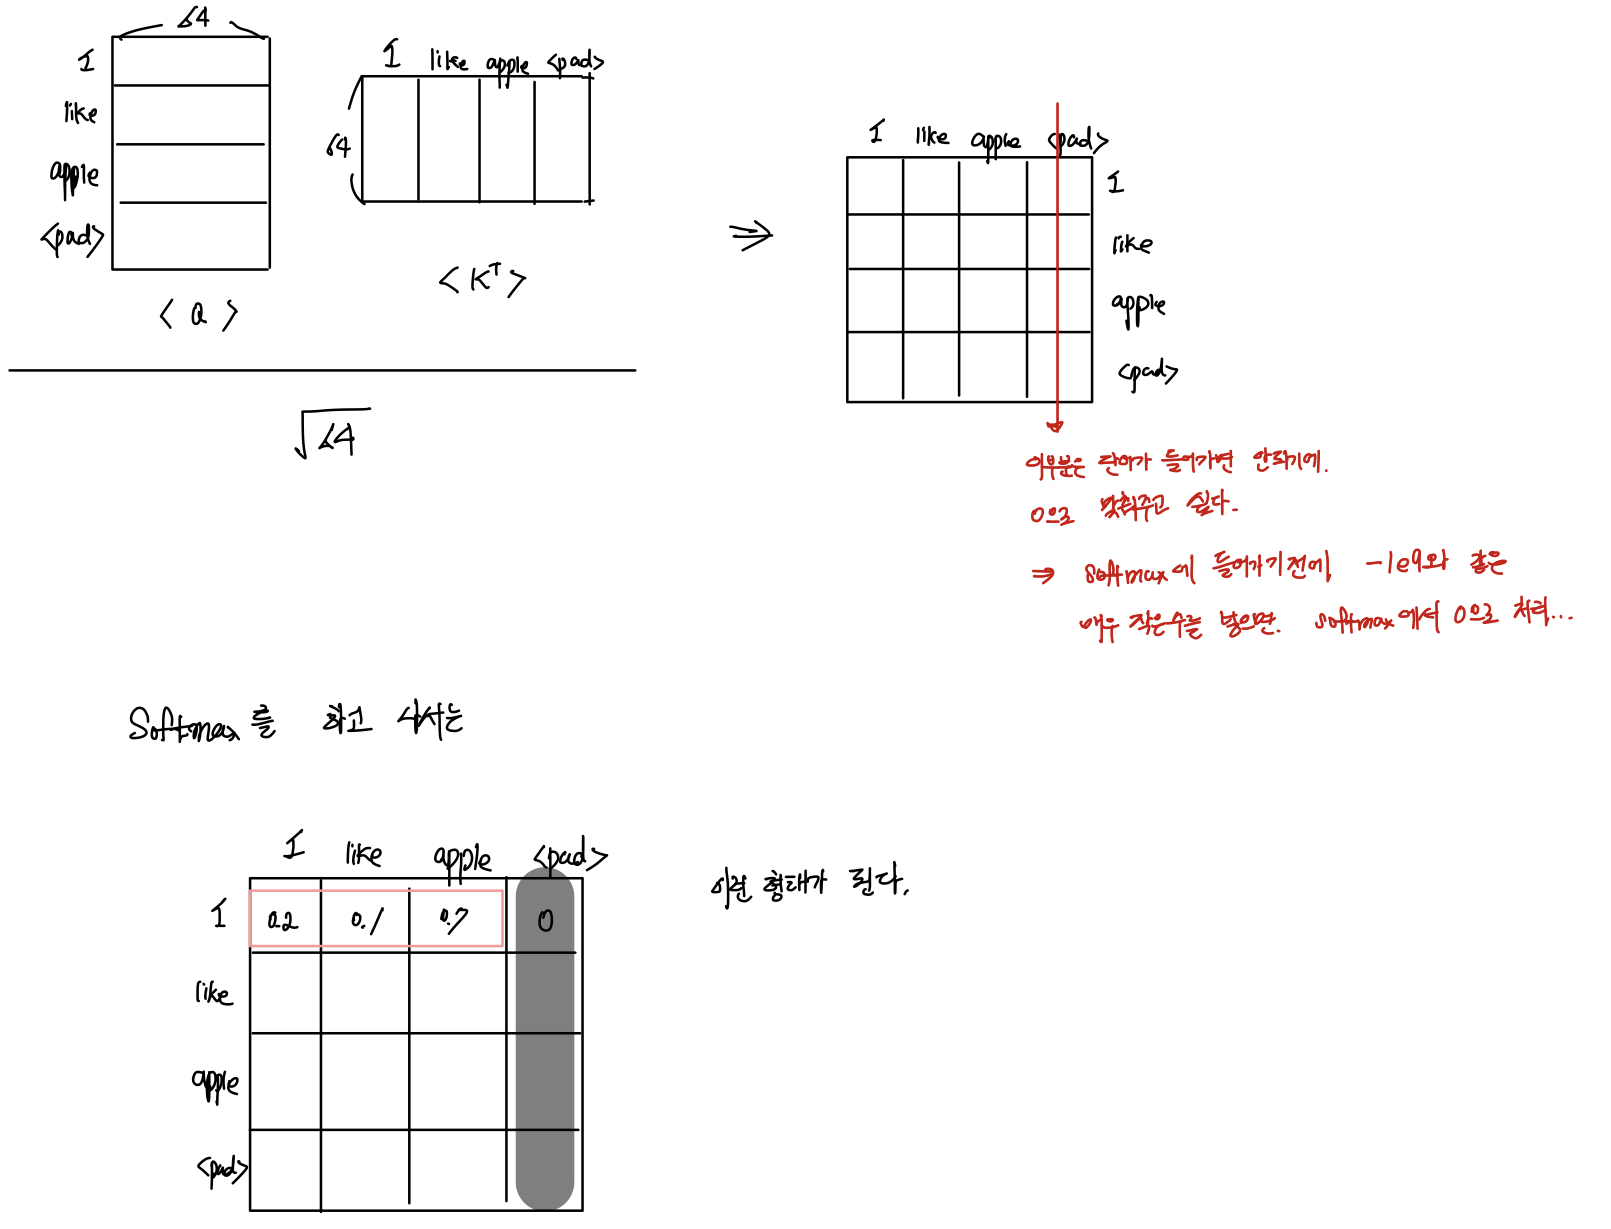 64
I
like
apple
<pad>
< Q >
I like apple <pad>
64
< K^T >
√64
⇒
I like apple <pad>
I
like
apple
<pad>
이부분은 단어가 들어가면 안되기에.
0으로 맞춰주고 싶다.
⇒ softmax에 들어가기전에 -1e9와 같은
매우 작은수를 넣으면. softmax에서 0으로 처리...
Softmax를 하고 나서는
I like apple <pad>
I 0.2 0.1 0.7 0
like
apple
<pad>
이런 형태가 된다.